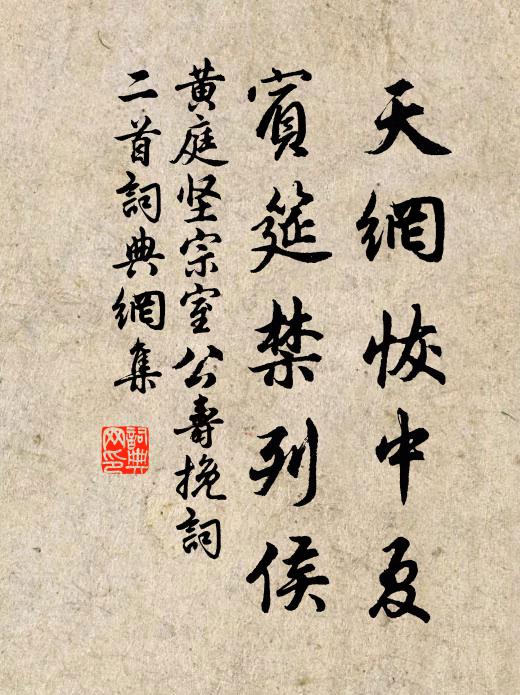 天網恢中夏
賓筵禁列侯
黄庭坚宗室公壽挽詞
二首詞典網集
詞典
网印